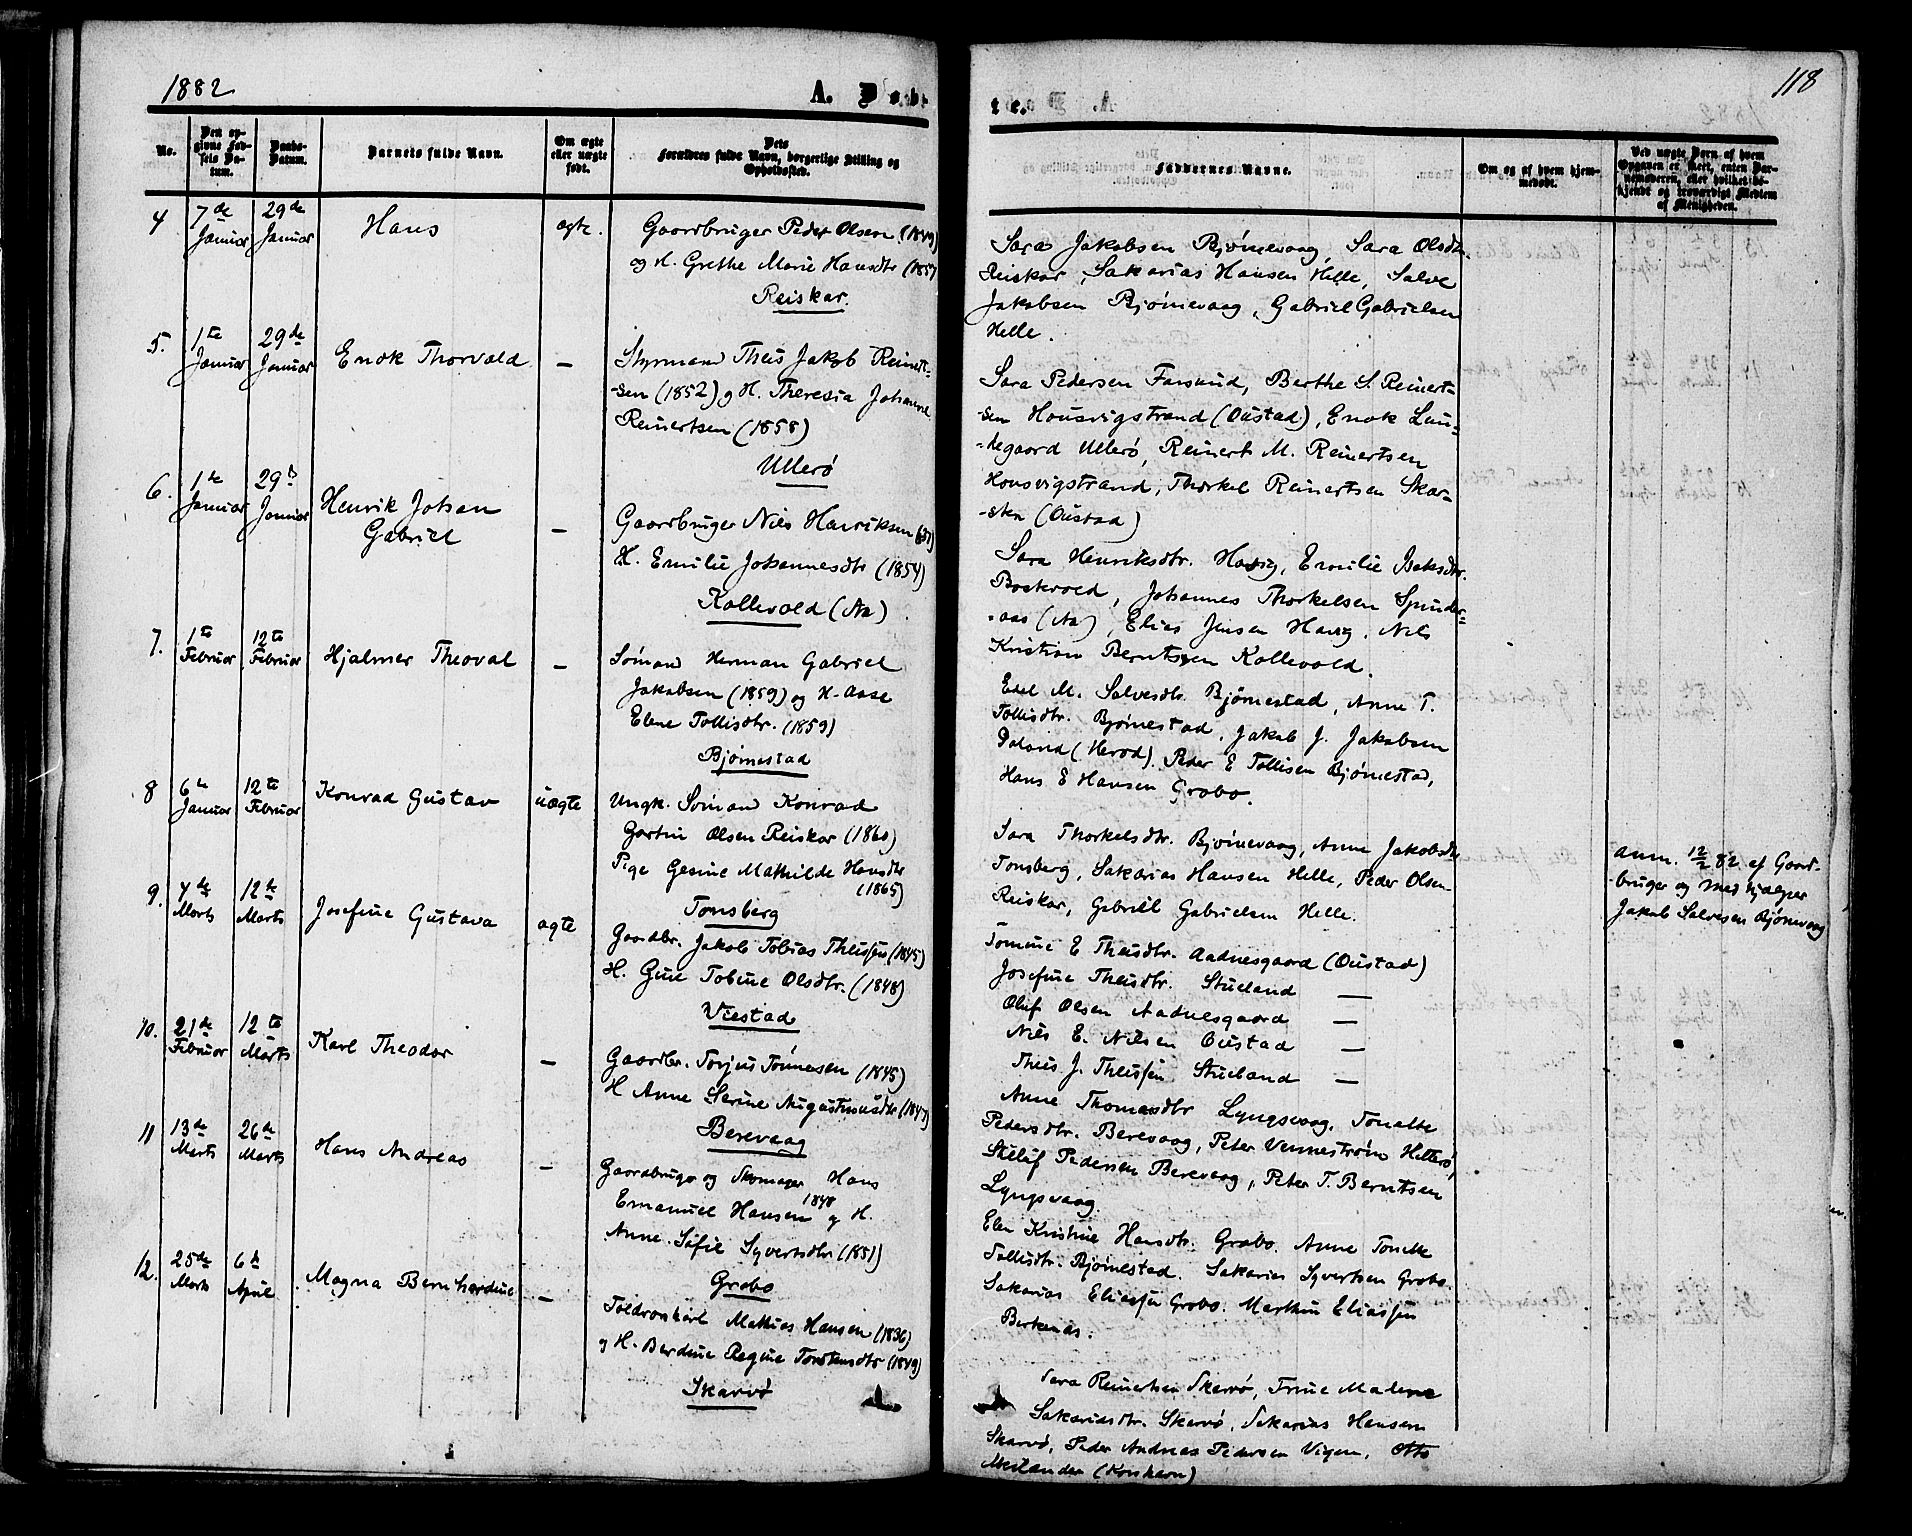 1882
A. Døbte.
118
No.
Den opgivne Fødsels Datum.
Daabs-Datum.
Barnets fulde Navn.
Om ægte eller uægte født.
Dets Forældres fulde Navn, borgerlige Stilling og Opholdssted.
Faddernes Navne.
Om og af hvem hjemmedøbt.
Ved uægte Børn af hvem Opgaven er skeet, enten Barnemoderen, eller hvilket bekjendt og troværdigt Medlem af Menigheden.
4
7de Januar
29de Januar
Hans
ægte.
Gaardbruger Peder Olsen (1849)
og H. Grethe Marie Hansdtr (1857)
Reiskar.
Sara Jakobsen Bjørnevaag, Sara Olsdtr.
Reiskar, Sakarias Hansen Helle, Salve
Jakobsen Bjørnevaag, Gabriel Gabrielsen
Helle.
5.
1te Januar
29de Januar
Enok Thorvald
—
Styrmand Theis Jakob Reinert-
-sen (1852) og H. Theresia Johanne
Reinertsen (1858)
Ullerø
Sara Pedersen Farsund, Berthe S. Reinert-
-sen Housvigstrand (Oustad), Enok Lun-
-degaard Ullerø, Reinert M. Reinertsen
Housvigstrand, Thorkel Reinertsen Skar-
-sten (Oustad)
6.
1te Januar
29d Januar
Henrik Johan
Gabriel
—
Gaardbruger Nils Henriksen
H. Emilie Johannesdtr (1854)
Kollevold (Aa)
Sara Henriksdtr. Havig, Emilie
Johannes Thorkelsen Spinder-
-aas (Aa), Elias Jensen Havig, Nils
Kristian Berntsen Kollevold.
7.
1te Februar
12te Februar
Hjalmer Theoval
—
Sømand Herman Gabriel
Jakobsen (1859) og H. Aase
Elene Tollisdtr. (1859)
Bjørnestad
Edel M. Salvesdtr. Bjørnestad, Anne T.
Tollisdtr. Bjørnestad, Jakob J. Jakobsen
Peder E Tollisen Bjørnestad,
Hans E Hansen Grobo.
8
6te Januar
12te Februar
Konrad Gustav
uægte
Ungk. Sømand Konrad
Gartin Olsen Reiskar (1860)
Pige Gesine Mathilde Hansdtr
(1865)
Tonsberg
Sara Thorkelsdtr. Bjørnevaag, Anne Jakobsdtr
Tonsberg, Sakarias Hansen Helle, Peder Olsen
Reiskar, Gabriel Gabrielsen Helle.
anm. 12/2 82 af Gaard-
-bruger og Medhjælper
Jakob Salvesen Bjørnevaag
9.
4de Marts
12te Marts
Josefine Gustava
ægte
Gaardbr. Jakob Tobias Theissen (1845)
H. Gine Tobine Olsdtr. (1848)
Viestad
Tomine E Theisdtr. Aadnesgaard (Oustad)
Josefine Theisdtr. Stueland —
Oluf Olsen Aadnesgaard —
Nils E. Nilsen Oustad —
Theis J. Theissen Stueland —
10.
21de Februar
12te Marts
Karl Theodor
—
Gaardbr. Torjus Tønnesen (1845)
H Anne Serine Augustinusdtr (1847)
Berevaag
Anne Thomasdtr Lyngsvaag, Tonette
Pedersdtr. Berevaag, Peter Vennestrøm Hitterø,
Pedersen Berevaag, Peter T. Berntsen
Lyngsvaag.
11
13de Marts
26de Marts
Hans Andreas
—
Gaardbruger og Skomager Hans
Emanuel Hansen 1848 og H.
Anne Sofie Syvertsdtr (1851)
Grobo
Elen Kristine Hansdtr. Grobo. Anne Tonette
Tollisdtr. Bjørnestad. Sakarias Syvertsen Grobo.
Sakarias Eliassen Grobo. Marthin Eliassen
Birkenes.
12.
25de Marts
6te April
Magna Bernhardine
—
Toldroskarl Mathias Hansen (1836)
og H. Berdine Regine Torstensdtr (1849)
Skarvø
Sara Reinertsen Skarvø, Trine Madene
Sakariasdtr. Skarvø, Sakarias Hansen
Skarvø, Peder Andreas Pedersen Vigen, Otto
Meilander (Korshavn)